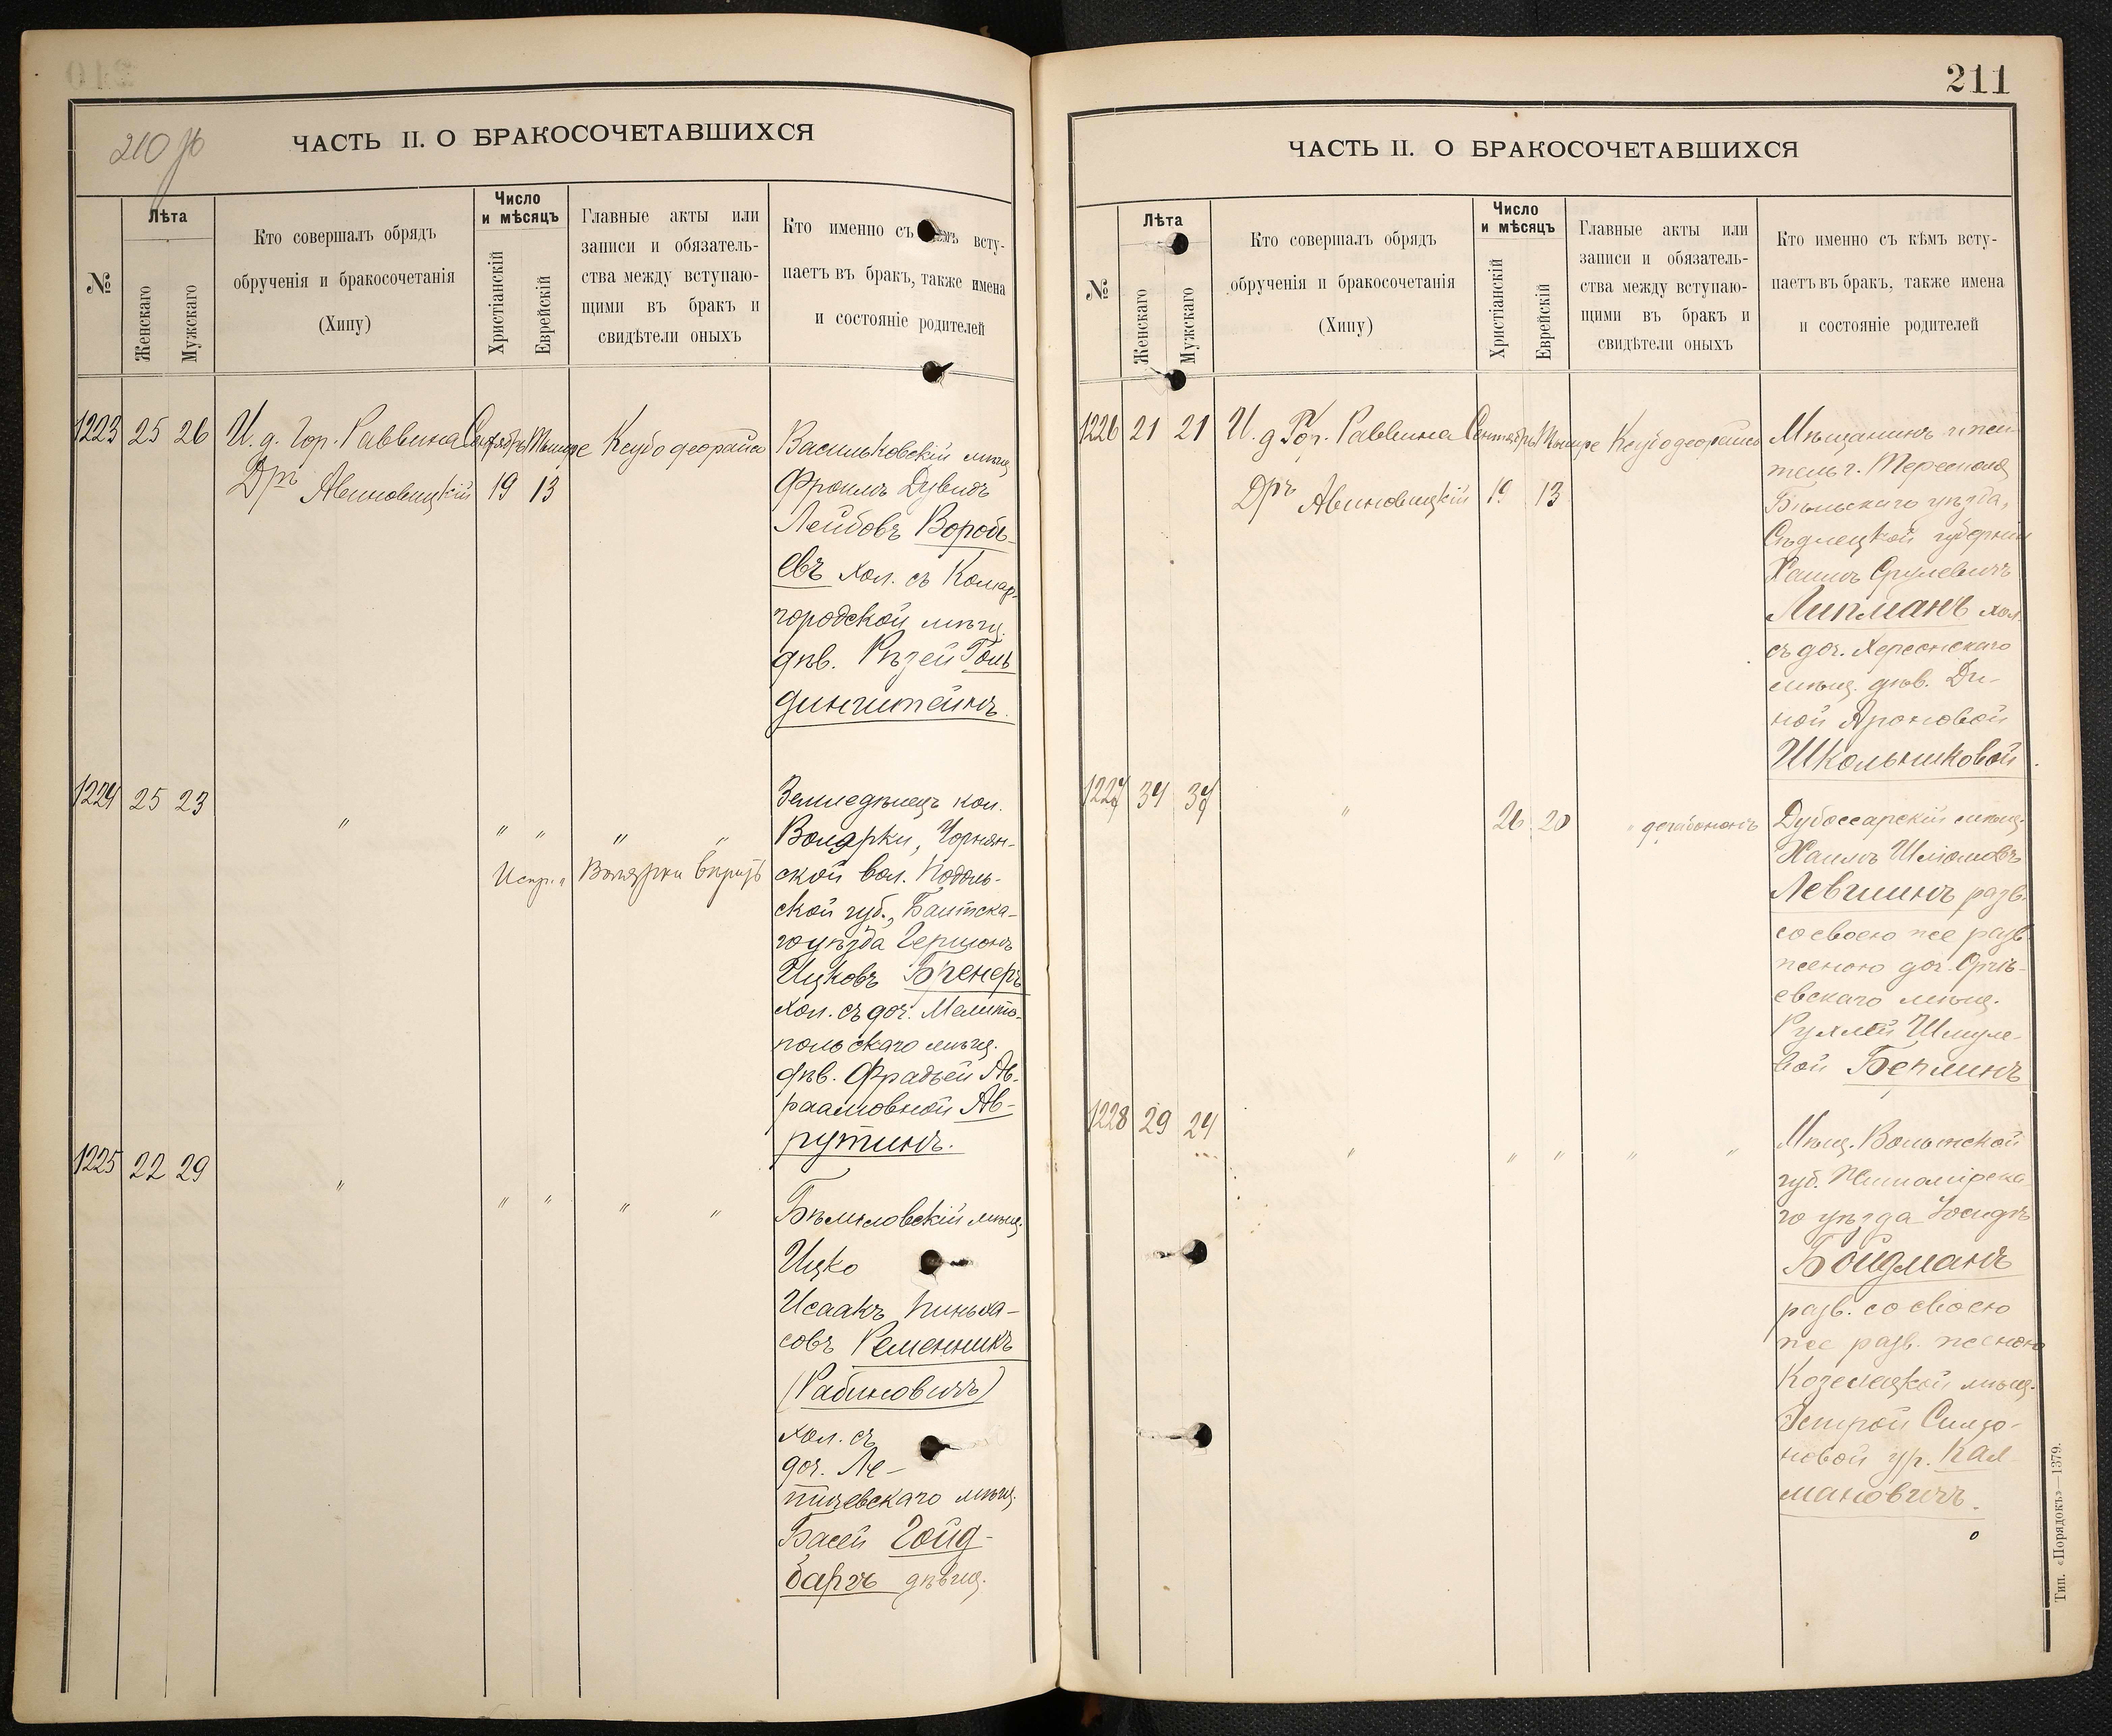 210 об
ЧАСТЬ II. О БРАКОСОЧЕТАВШИХСЯ
№
Лѣта
Женскаго
Мужскаго
Кто совершалъ обрядъ
обрученія и бракосочетанія
(Хипу)
Число
и мѣсяцъ
Христіанскій
Еврейскій
Главные акты или
записи и обязатель-
ства между вступаю-
щими въ бракъ и
свидѣтели оныхъ
Кто именно съ кѣмъ всту-
паетъ въ бракъ, также имена
и состояніе родителей
1223 25 26 И. д. Гор. Раввина Сентябрь Тишре Ксубо деорайсо
Дръ Авиновицкій 19 13
Васильковскій мѣщ.
Фроимъ Дувидъ
Лейбовъ Воробь-
евъ хол. съ Комар-
городской мѣщ.
дѣв. РѣзейГоль
динштейнъ.
1224 25 23 " " " " "
Испр. Волярки вѣрить
Земледѣлецъ кол.
Волярки, Чорнян-
ской вол. Подоль-
ской губ., Балтска-
го уѣзда Гершонъ
Ицковъ Бренеръ
хол. съ доч. Мелито-
польскаго мѣщ.
дѣв. Фрадьей Аб-
раамовной Ав-
рутинъ.
1225 22 29 " " " " "
Бѣлиловскій мѣщ.
Ицко
Исаакъ Пиньха-
совъ Ременникъ
(Рабиновичъ)
хол. съ
доч. Ле-
тичевскаго мѣщ.
Басей Гойд-
баргъ дѣвиц.
211
ЧАСТЬ II. О БРАКОСОЧЕТАВШИХСЯ
№
Лѣта
Женскаго
Мужскаго
Кто совершалъ обрядъ
обрученія и бракосочетанія
(Хипу)
Число
и мѣсяцъ
Христіанскій
Еврейскій
Главные акты или
записи и обязатель-
ства между вступаю-
щими въ бракъ и
свидѣтели оныхъ
Кто именно съ кѣмъ всту-
паетъ въ бракъ, также имена
и состояніе родителей
1226 21 21 И. д. Гор. Раввина Сентябрь Тишре Ксубо деорайсо
Дръ Авиновицкій 19 13
Мѣщанинъ и жи-
тель г. Тересполя
Бѣльскаго уѣзда,
Сѣдлецкой губерніи
Хаимъ Срулевичъ
Липманъ хол.
съ доч. Херсонскаго
мѣщ. дѣв. Ди-
ной Ароновой
Школьниковой.
1227 34 39 " 26 20 " дерабононъ
Дубоссарскій мѣщ.
Хаимъ Шліомовъ
Левшинъ разв.
со своею же разв.
женою доч. Оргѣ-
евскаго мѣщ.
Рухлей Шмуле-
вой Берлинъ
1228 29 24 " " " " "
Мѣщ. Волынской
губ. Житомірска
го уѣзда Іосифъ
Бойдманъ
разв. со своею
же разв. женою
Козелецкой мѣщ.
Эстрой Симхо-
новой ур. Кал-
мановичъ.
Тип. «Порядокъ»—1379.